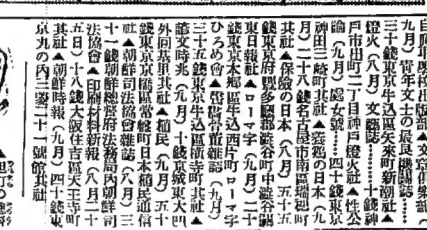 九月）青年文士の最良機関誌
三十錢東京牛込區矢來町新潮社▲
燈火（八月）文藝誌
戸市出町二丁目神戸燈火社▲性公
論（九月）處女號 四十錢東京
神田三崎町其社▲
月）二十八錢名古屋市南區瑞穂町
其社▲保險の日本（八月）五十五
錢東京府豐多摩郡澁谷町中澁谷
東日報社▲ローマ字（九月）二十
錢東京本郷區駒込西片町ローマ字
ひろめ會▲會雜誌（九月）
三十五錢東京牛込區横寺町其社▲
論文時兆（九月）十錢京城東大門
外回基里其社▲植民（九月）五十
錢東京京橋區常盤町日本植民通信
社▲朝鮮司法協會雜誌（八月）三
十錢朝鮮總督府法務局内朝鮮司
法協會▲印刷材料新報（八月二十
五日）十八錢大阪住吉區天王寺町
其社▲朝鮮時報（九月）四十錢東
京丸の内三菱二十一號館其社